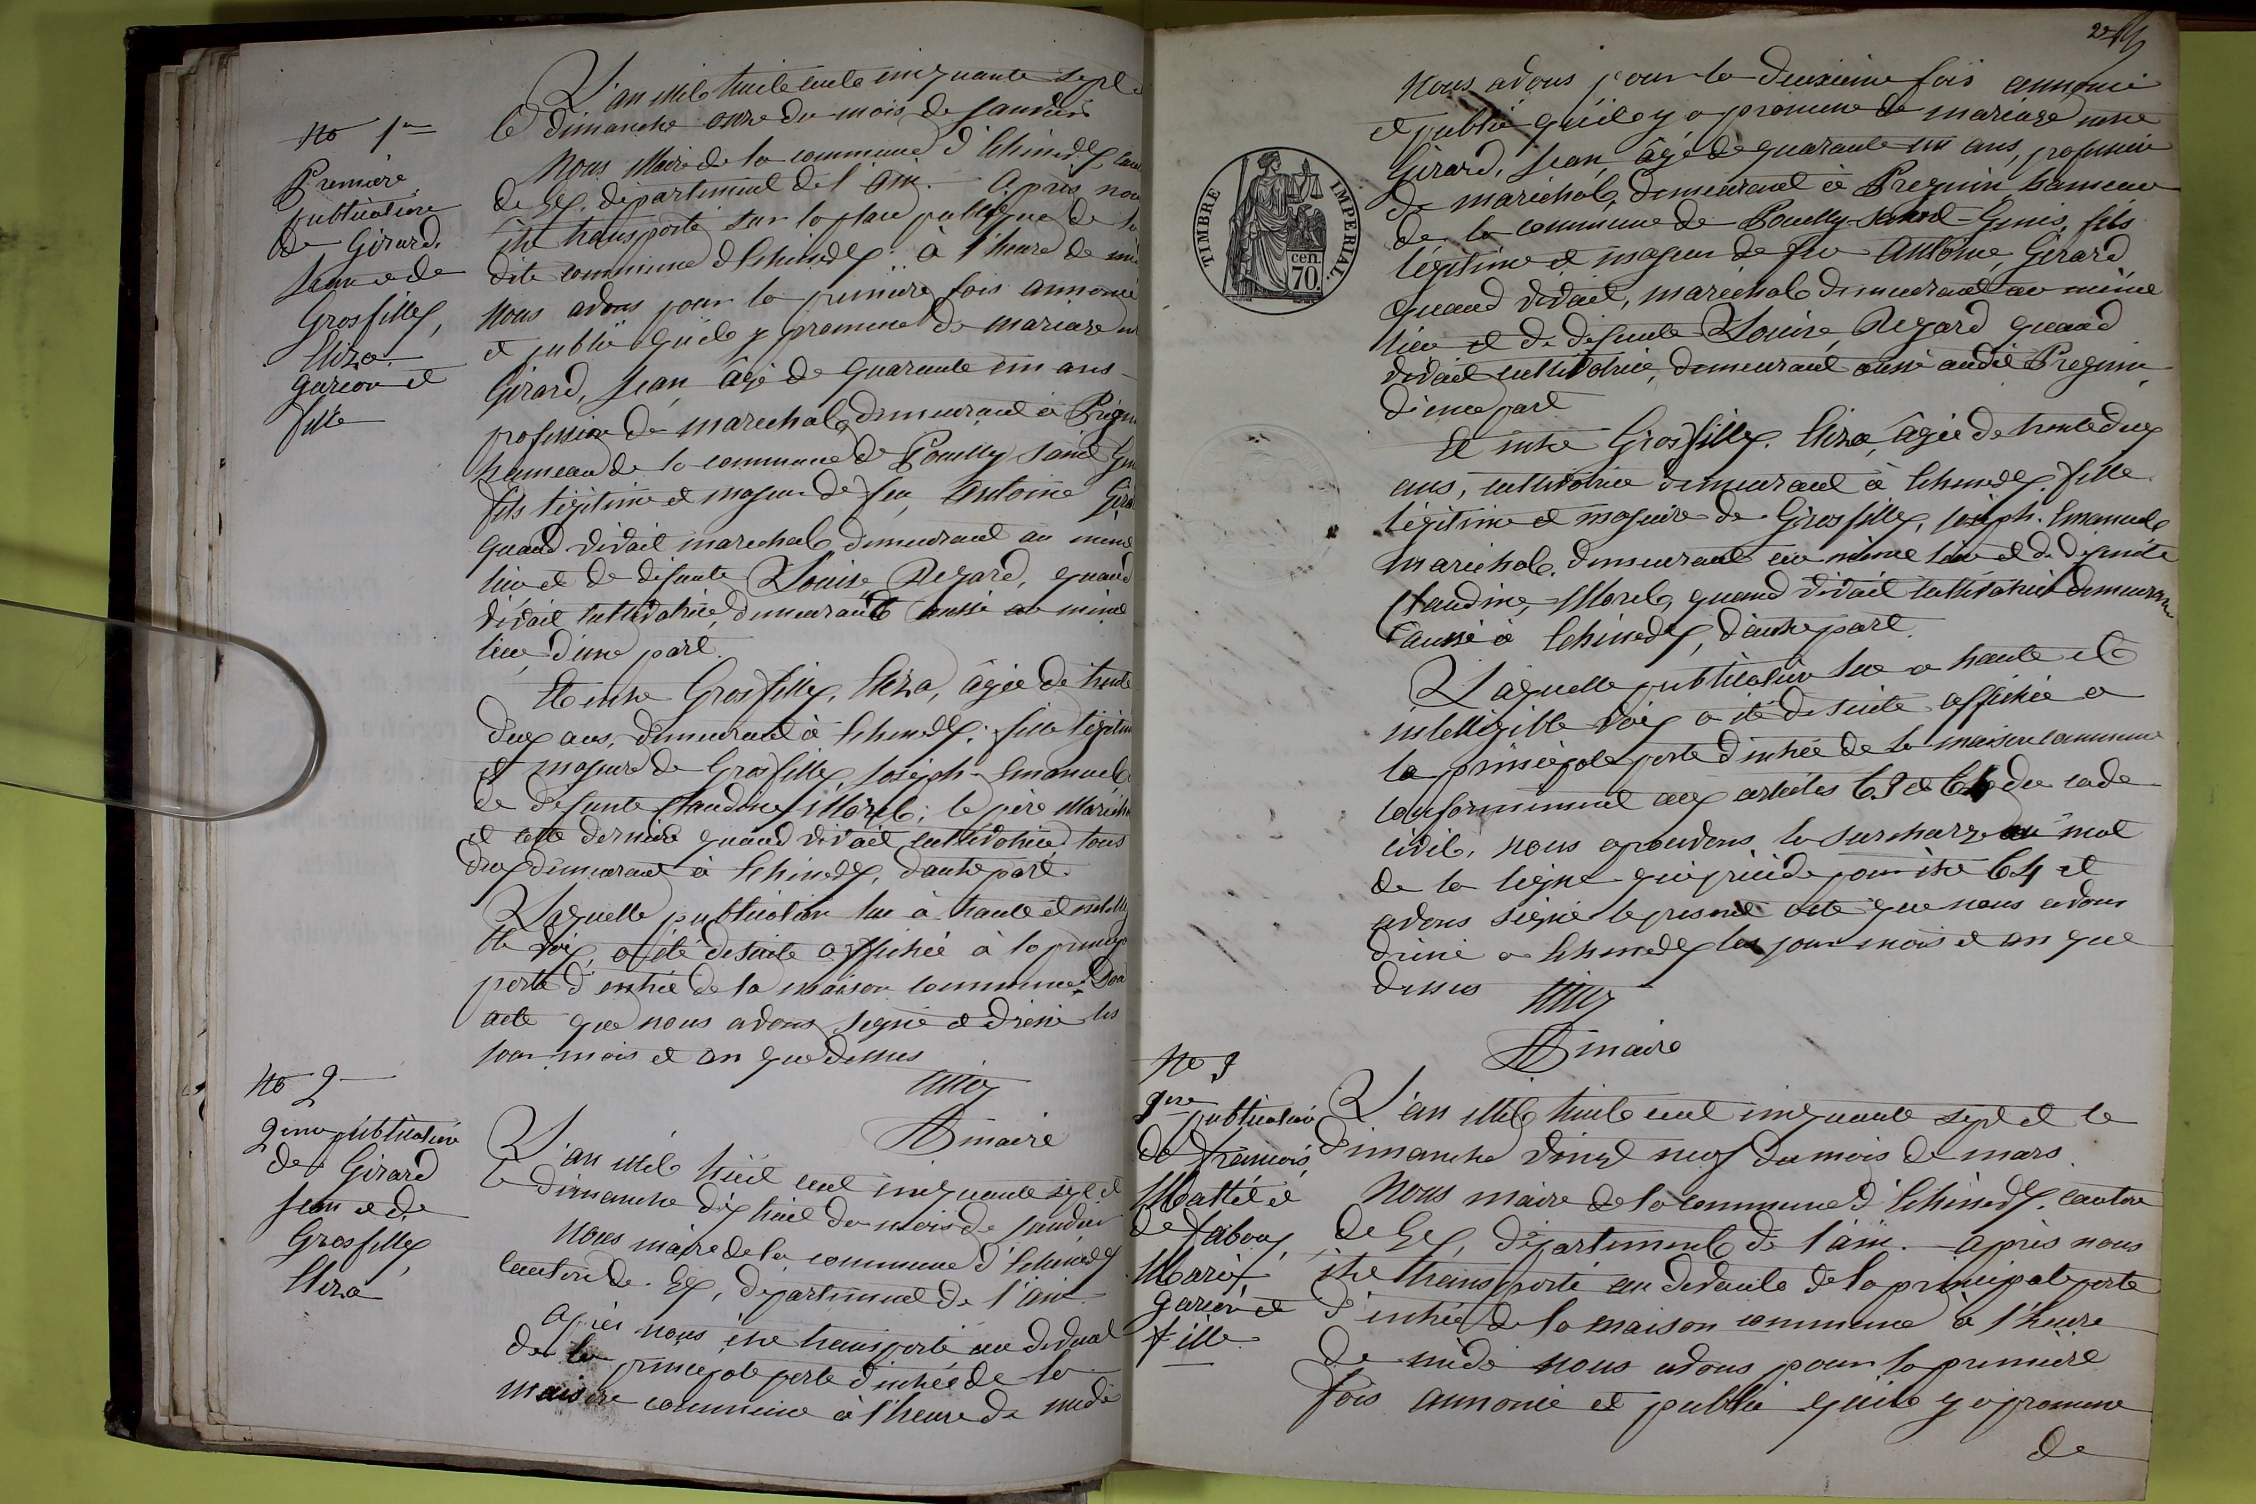 No 1er
Première
publication
de Girard,
Jean et de
Grosfilley,
Eliza
garçon et
fille
L'an mil huit cent cinquante sept
le dimanche onze du mois de Janvier
Nous Maire de la commune d'Echenevex
de Gex, département de l'Ain. Après nous
être transporté sur la place publique de la
dite commune d'Echenevex à l'heure de midi
Nous avons pour la première fois annoncé
et publié qu'il y promesse de mariage
Girard, Jean, âgé de quarante un ans
profession de marechal, demeurant à
hameau de la commune de Pouilly Saint
fils légitime et majeur de feu Antoine
quand vivait marechal demeurant au même
lieu et de défunte Louise Regard, quand
vivait cultivatrice, demeurant aussi au même
lieu, d'une part.
Et entre Grosfilley, Eliza, âgée de trente
deux ans, demeurant à Echenevex, fille
et majeure de Grosfilley Joseph-Emanuel
de defunte Claudine Morel; le père
et cette dernière quand vivait cultivatrice tous
deux demeurant à Echenevex, d'autre part.
Laquelle publication lue à haute et
ble voix, a été de suite affichée à la
porte d'entrée de la maison commune.
acte que nous avons signé et dressé les
jour mois et an que dessus
maire
No 2
2eme publication
de Girard
Jean et de
Grosfilley,
Eliza
L'an mil huit cent cinquante sept et
le dimanche dix huit du mois de Janvier
Nous maire de la commune d'Echenevex
canton de Gex, département de l'ain
Après nous être transporté au devant
de la principale porte d'entrée de la
maison commune à l'heure de midi
Nous avons pour la deuxième fois annoncé
et publié qu'il y a promesse de mariage
Girard, Jean, âgé de quarante un ans, profession
de maréchal, demeurant à Pregnin hameau
de la commune de Pouilly-Saint-Genis, fils
légitime et majeur de feu Antoine, Girard
quand vivait, maréchal demeurant au même
lieu et de défunte Louise, Regard quand
vivait cultivatrice, demeurant aussi audit Pregnin,
d'une part
Et entre Grosfilley. Eliza, âgée de trente deux
ans, cultivatrice demeurant à Echenevex, fille
légitime et majeure de Grosfilley, Joseph. Emanuel
maréchal, demeurant au même lieu et de défunte
Claudine, Morel, quand vivait cultivatrice
aussi à Echenevex, d'autre part.
Laquelle publication lue a haute et
intelligible voix a été de suite affichée a
la principale porte d'entrée de la maison commune
conformément aux articles 63 et 64 du code
civil, nous la surcharge au mot
de la ligne qui précède pour être 64 et
avons signé le present acte que nous avons
dressé a Echenevex les jour mois et an que
dessus
maire
TIMBRE IMPERIAL.
cen. 70.
No 3
1ere publication
de francois,
de
Marie
garçon et
fille
L'an mil huit cent cinquante sept et le
dimanche vingt neuf du mois de mars
Nous maire de la commune d'Echenevex, canton
de Gex, département de l'ain. après nous
être transporté au devant de la principale porte
d'entrée de la maison commune à l'heure
de midi nous avons pour la première
fois annoncé et publié qu'il y a promesse
de